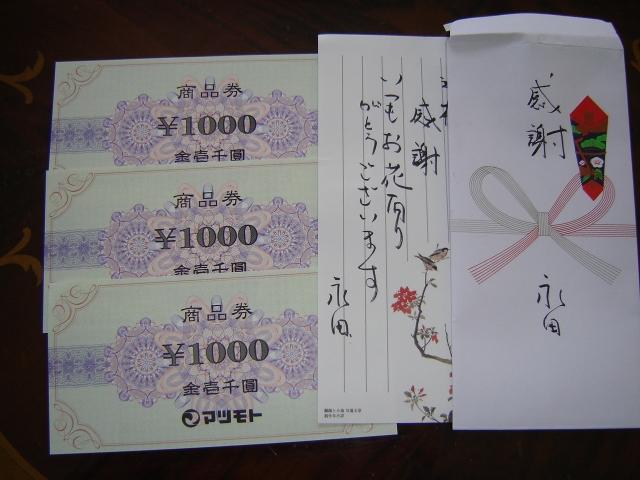 商品券
¥1000
金壱千圓
商品券
¥1000
金壱千圓
商品券
¥1000
金壱千圓
マツモト
感謝
いつもお花有り
がとうございます
永田
感謝
永田